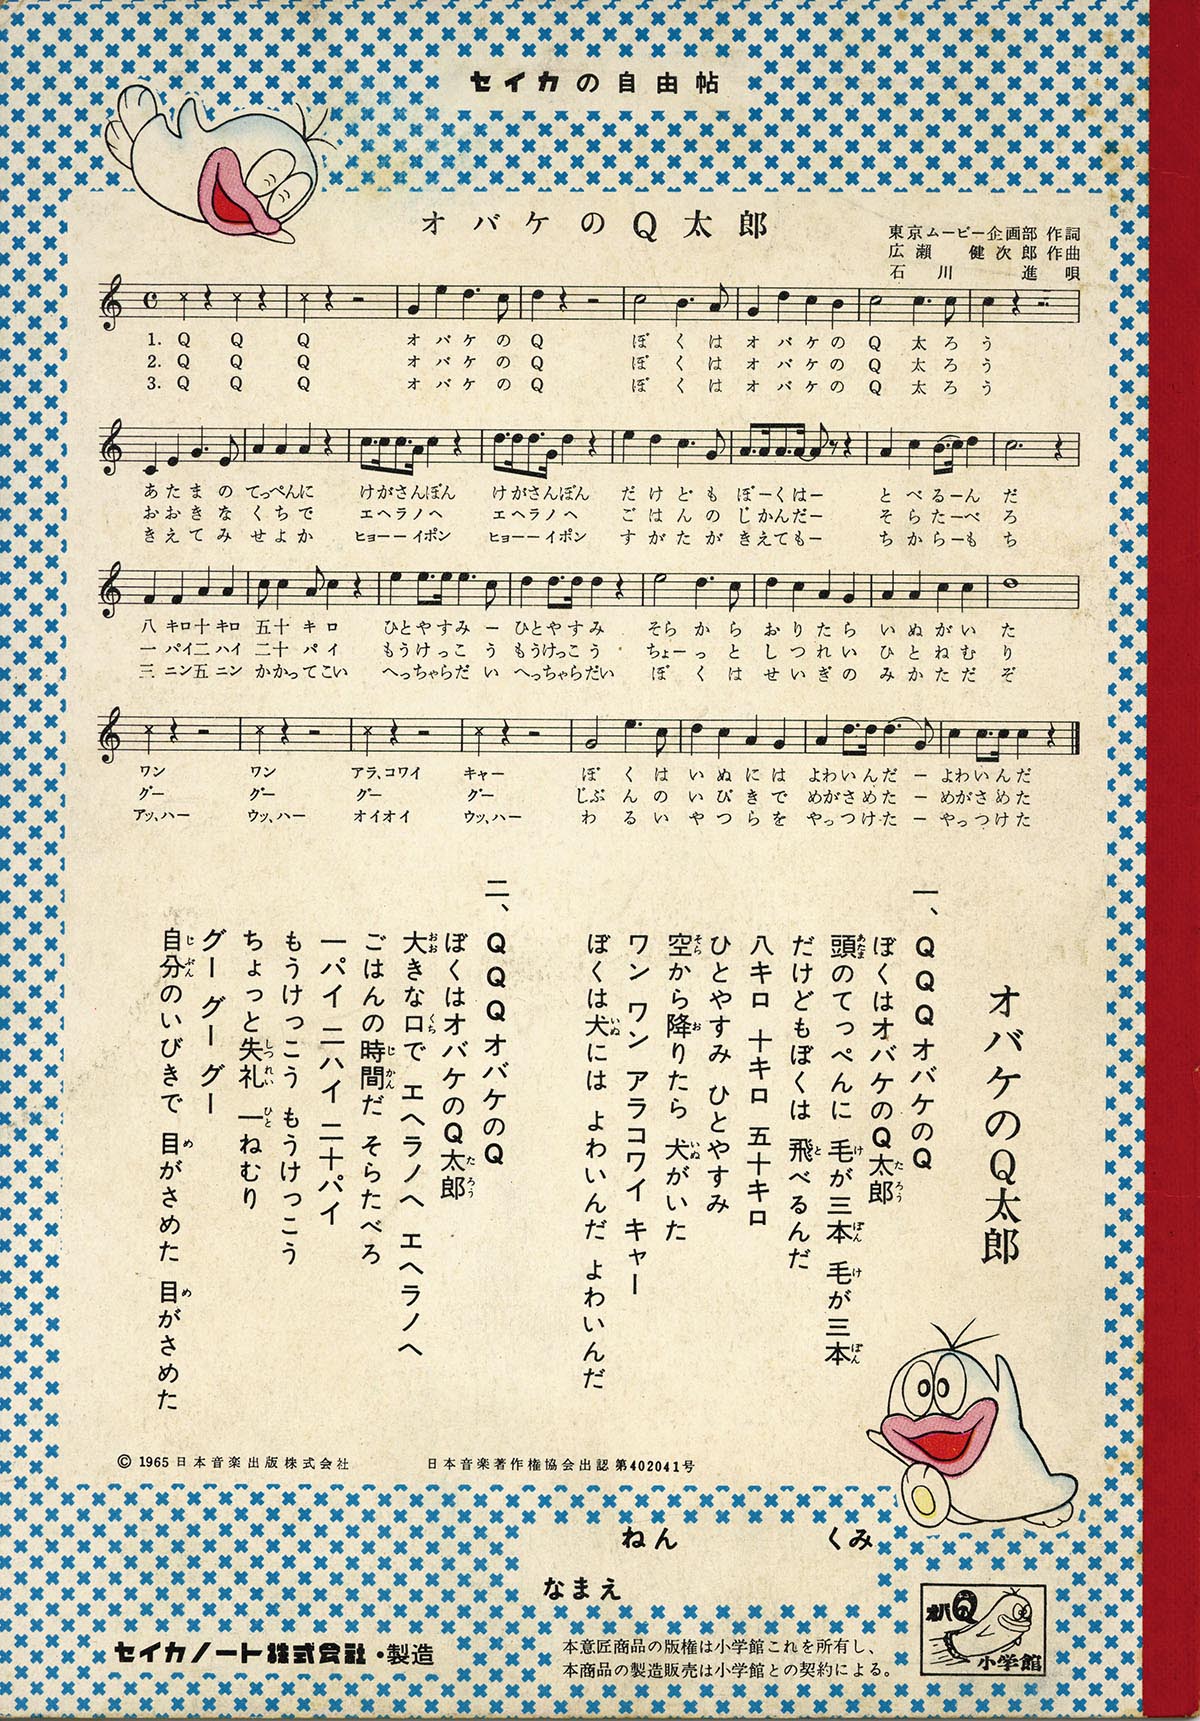 セイカの自由帖
オバケのQ太郎
東京ムービー企画部 作詞
広瀬 健次郎 作曲
石川 進 唄
1. Q Q Q オバケのQ ぼくは オバケの Q 太ろう
2. Q Q Q オバケのQ ぼくは オバケの Q 太ろう
3. Q Q Q オバケのQ ぼくは オバケの Q 太ろう
あたまの てっぺんに けがさんぼん けがさんぼん だけども ぼーくはー とべるーん だ
おおきな くちで エヘラノヘ エヘラノヘ ごはんの じかんだー そらたーべ ろ
きえてみ せよか ヒョーーイポン ヒョーーイポン すがたが きえてもー ちからーも ち
八 キロ 十 キロ 五十 キロ ひとやすみー ひとやすみ そらから おりたら いぬがい た
一 パイ 二 ハイ 二十 パイ もうけっこう もうけっこう ちょーっと しつれい ひとねむ り
三 ニン 五 ニン かかってこい へっちゃらだい へっちゃらだい ぼくは せいぎの みかただ ぞ
ワン ワン アラ、コワイ キャー ぼくは いぬには よわいんだー よわいんだ
グー グー グー グー じぶんの いびきで めがさめたー めがさめた
アッ、ハー ウッ、ハー オイオイ ウッ、ハー わるい やつらを やっつけたー やっつけた
オバケのQ太郎
一、QQQオバケのQ
ぼくはオバケのQ太郎
頭のてっぺんに 毛が三本 毛が三本
だけどもぼくは 飛べるんだ
八キロ 十キロ 五十キロ
ひとやすみ ひとやすみ
空から降りたら 犬がいた
ワン ワン アラコワイ キャー
ぼくは犬には よわいんだ よわいんだ
二、QQQオバケのQ
ぼくはオバケのQ太郎
大きな口で エヘラノヘ エヘラノヘ
ごはんの時間だ そらたべろ
一パイ 二ハイ 二十パイ
もうけっこう もうけっこう
ちょっと失礼 一ねむり
グー グー グー
自分のいびきで 目がさめた 目がさめた
© 1965 日本音楽出版株式会社
日本音楽著作権協会出認 第402041号
ねん くみ
なまえ
セイカノート株式会社・製造
本意匠商品の版権は小学館これを所有し、
本商品の製造販売は小学館との契約による。
オバQ
小学館